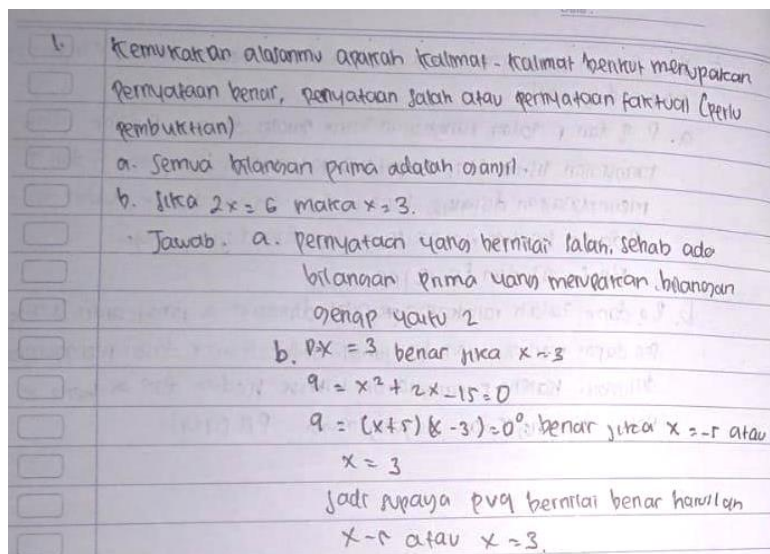 1. Kemukakan alasanmu apakah kalimat-kalimat berikut merupakan
Pernyataan benar, penyataan salah atau pernyataan faktual (perlu
pembuktian)
a. Semua bilangan prima adalah ganjil.
b. Jika 2x = 6 maka x = 3.
Jawab. a. pernyataan yang bernilai salah, sebab ada
bilangan prima yang merupakan bilangan
genap yaitu 2
b. P.x = 3 benar jika x = 3
q = x² + 2x - 15 = 0
q = (x+5) (x-3) = 0 benar jika x = -5 atau
x = 3
Jadi supaya pvq bernilai benar haruslah
x-5 atau x = 3.